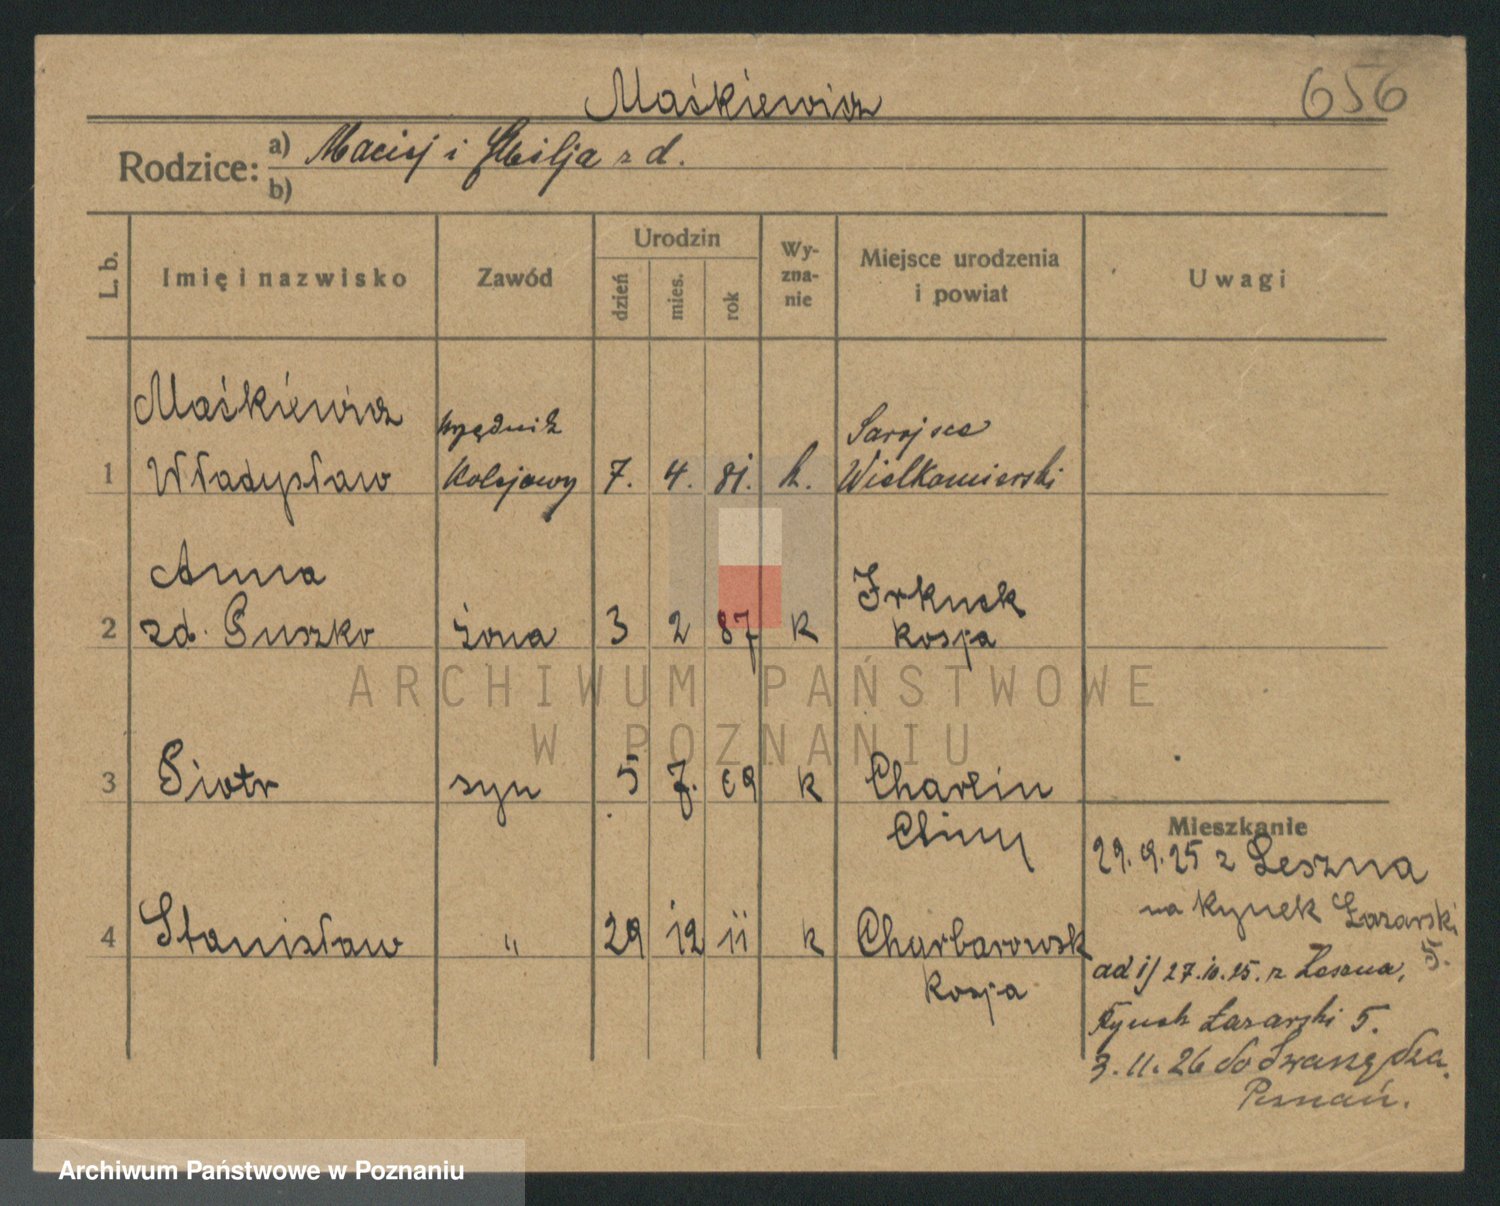 656
Maśkiewicz
Rodzice: a) Maciej i Emilja z d.
b)
L. b.
Imię i nazwisko
Zawód
Urodzin
dzień
mies.
rok
Wy-
zna-
nie
Miejsce urodzenia
i powiat
Uwagi
Maśkiewicz
urzędnik
1 Władysław Kolejowy 7. 4. 81. k. Wielkomierski
Anna
Irkuck
2 zd. Puszko żona 3 2 87 k Rosja
ARCHIWUM PAŃSTWOWE
W POZNANIU
3 Piotr syn 5 7. 09 k Charbin
Chiny
4 Stanisław " 29 12 11 k Charbarowsk
Rosja
Mieszkanie
29.9.25 z Leszna
na Rynek Łazarski
5.
ad 1/ 27.10.25. z Leszna,
Rynek Łazarski 5.
3.11.26 do
Poznań.
Archiwum Państwowe w Poznaniu